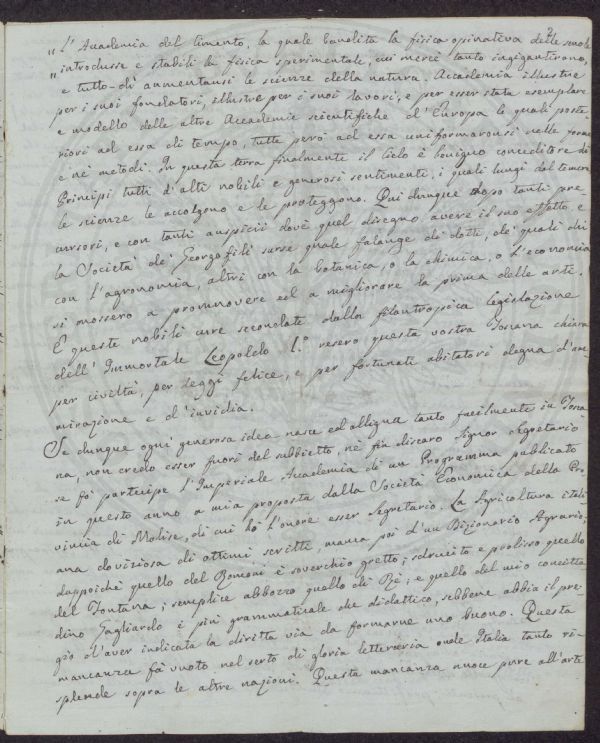 „ L'Accademia del Cimento, la quale bandita la fisica opinativa delle scuole
„ introdusse e stabilì la fisica sperimentale, cui mercè tanto ingigantirono,
e tutto-dì aumentansi le scienze della natura. Accademia illustre
per i suoi fondatori, illustre per i suoi lavori, e per esser stata esemplare
e modello delle altre Accademie scientifiche d'Europa le quali poste-
riori ad essa di tempo, tutte però ad essa uniformaronsi nelle forme
e ne' metodi. In questa terra finalmente il Cielo è benigno conceditore di
Principi tutti d'alti nobili e generosi sentimenti, i quali lungi dal temere
le scienze le accolgono e le proteggono. Qui dunque dopo tanti pre-
cursori, e con tanti auspicii dovè quel disegno avere il suo effetto e
la Società de' Georgofili surse quale falange di dotti, de' quali chi
con l'agronomia, altri con la botanica, o la chimica, o l'economia
si mossero a promuovere ed a migliorare la prima delle arti.
E queste nobili cure secondate dalla filantropica legislazione
dell'Immortale Leopoldo I.º resero questa vostra Toscana chiara
per civiltà, per leggi felice, e per fortunati abitatori degna d'am-
mirazione e d'invidia.
Se dunque ogni generosa idea nasce ed alligna tanto facilmente in Tosca-
na, non credo esser fuori del subbietto, nè fia discaro Signor Segretario
se fo' partecipe l'Imperiale Accademia di un Programma pubblicato
in questo anno a mia proposta dalla Società Economica della Pro-
vincia di Molise, di cui ho l'onore esser Segretario. La Agricoltura itali-
ana doviziosa di ottimi scritti, manca poi d'un Dizionario Agrario;
dappoichè quello del Ronconi è soverchio gretto; sdrucito e prolisso quello
del Fontana; semplice abbozzo quello di Re; e quello del mio concitta-
dino Gagliardo è più grammaticale che didattico, sebbene abbia il pre-
gio d'aver indicata la diritta via da formarne uno buono. Questa
mancanza fa vuoto nel serto di gloria letteraria onde Italia tanto ri-
splende sopra le altre nazioni. Questa mancanza nuoce pure all'arte